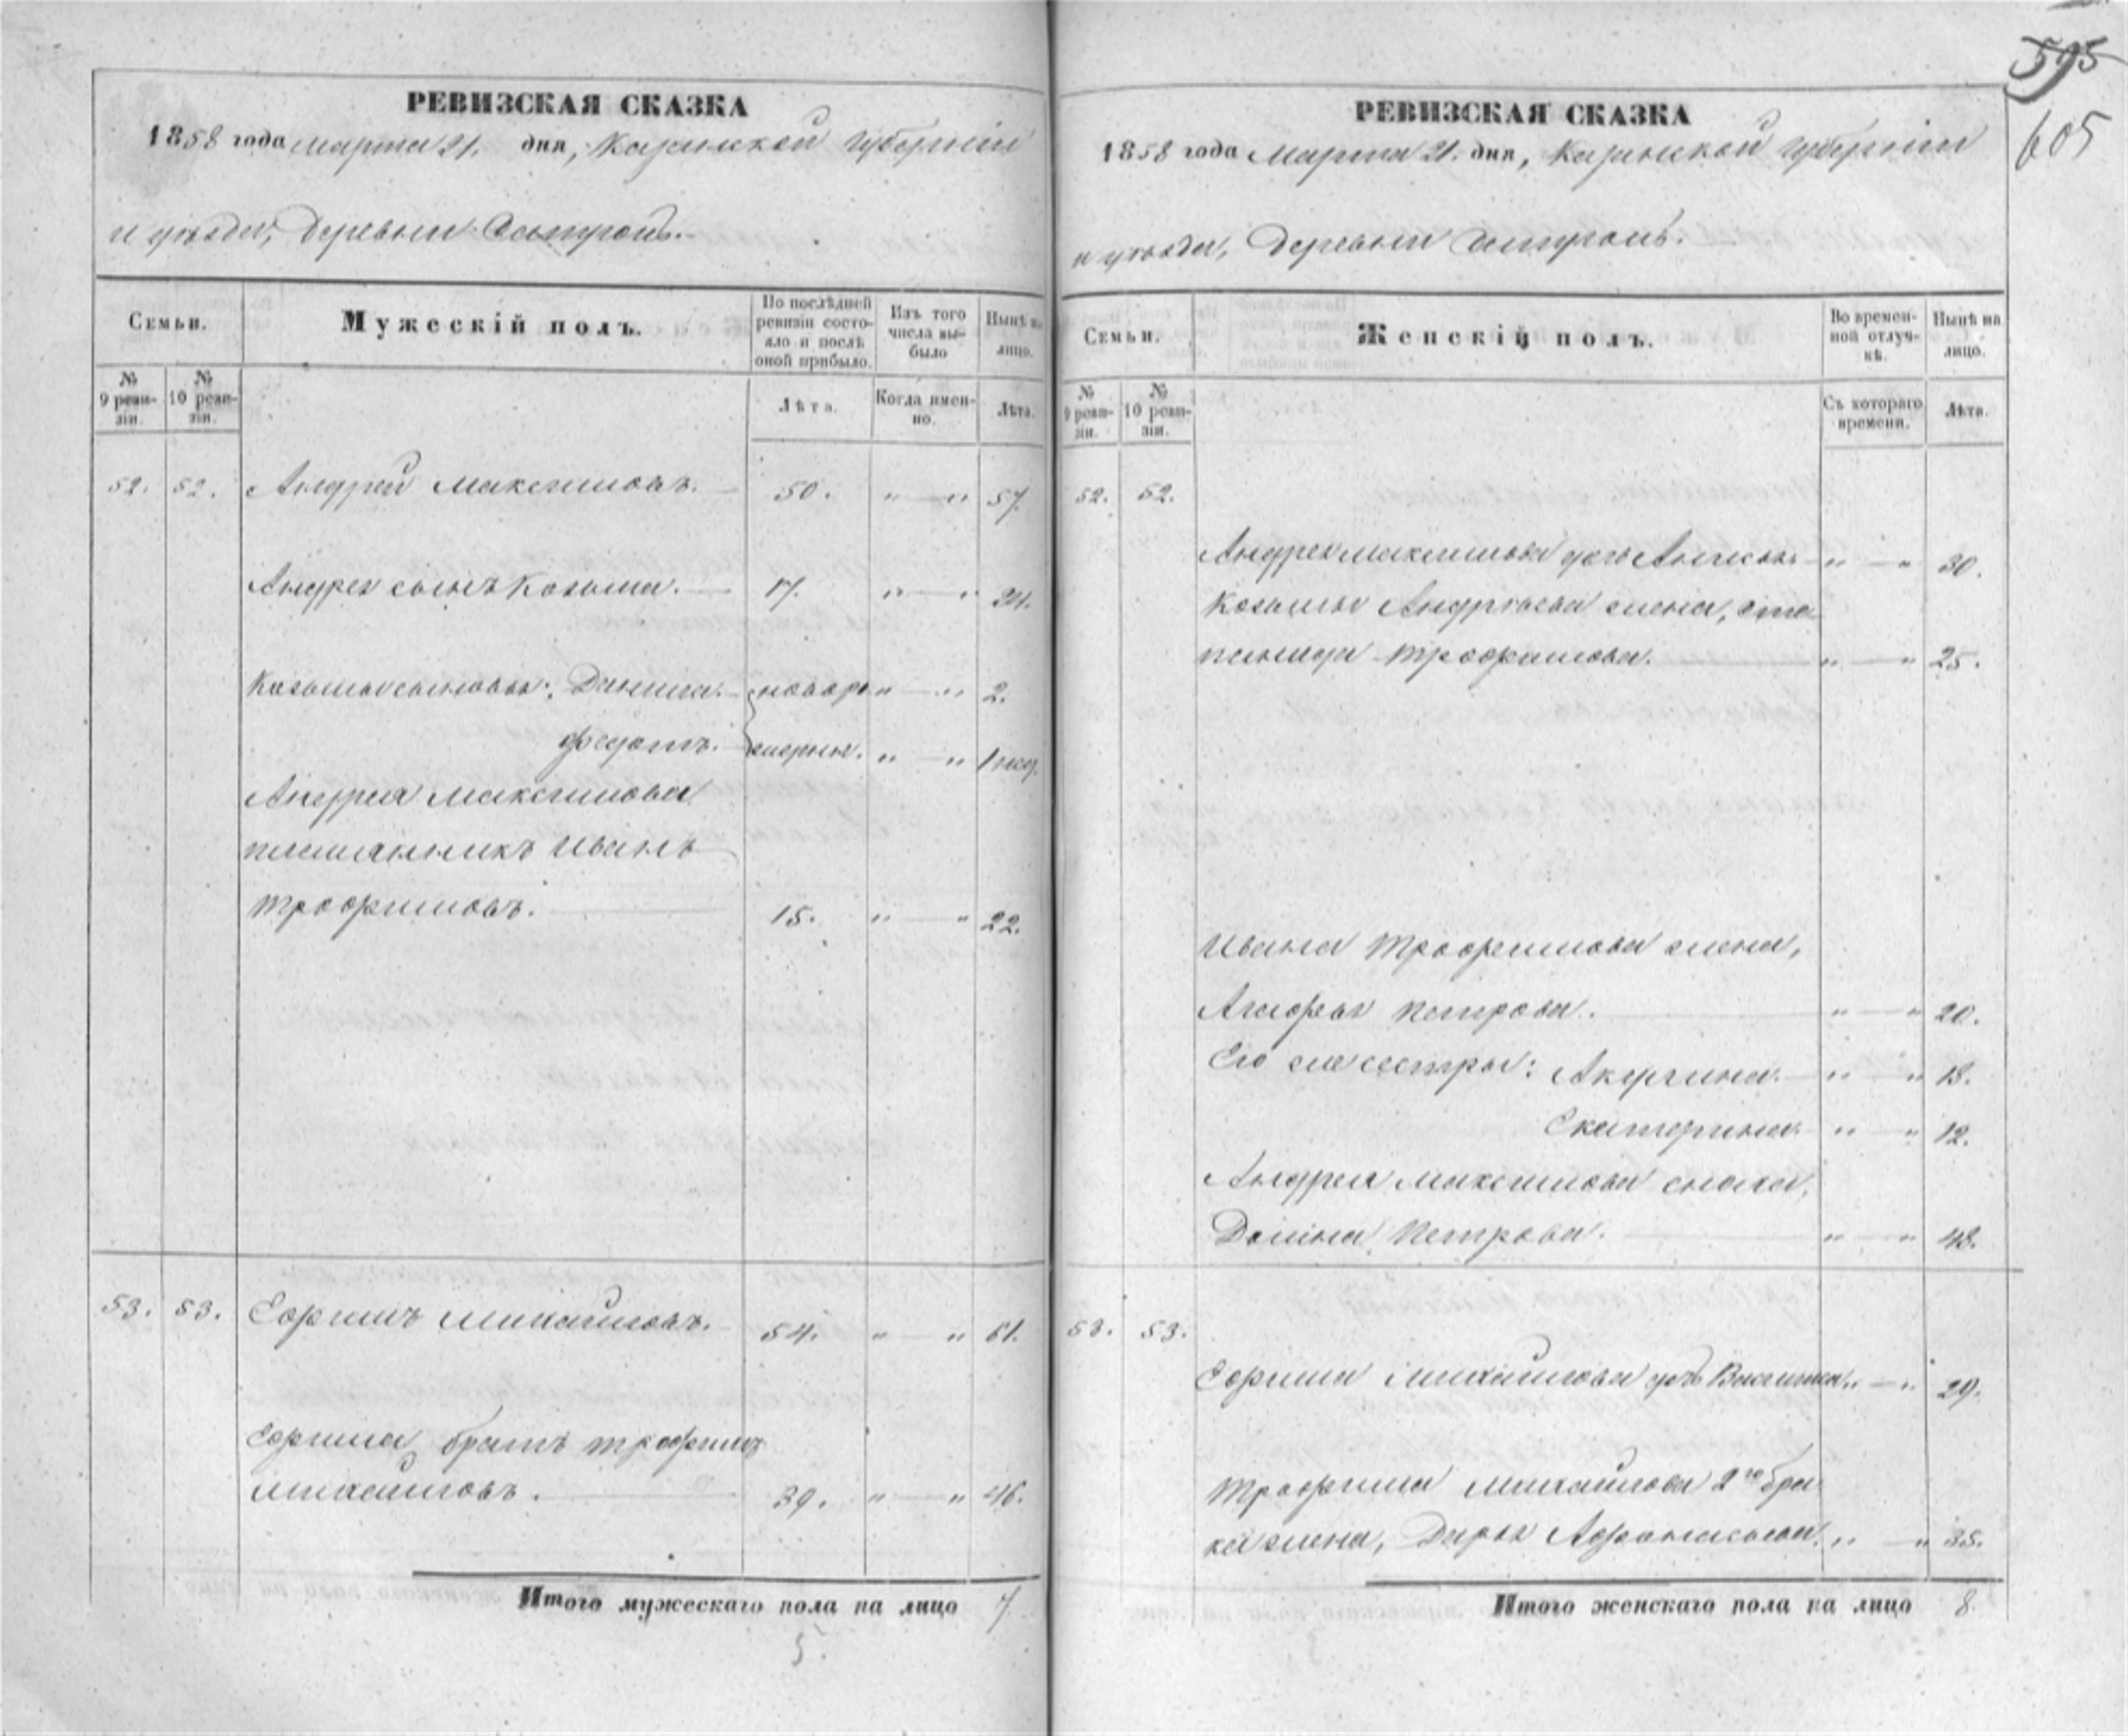 595
605
РЕВИЗСКАЯ СКАЗКА
1858 года Марта 21. дня, Казанской Губерніи
и уѣзда, деревни
Семьи.
Мужескій полъ.
По послѣдней ревизіи состояло и послѣ оной прибыло.
Изъ того числа выбыло
Нынѣ на лицо.
№ 9 ревизіи.
№ 10 ревизіи.
Лѣта.
Когда именно.
Лѣта.
52. 52. Андрей Максимовъ. 50. " — " 57.
Андрея сынъ Козьма. 17. " — " 24.
Козьмы сыновья: Данила. новоро " — " 2.
Федотъ. жденны. " — " 1 нед.
Андрея Максимова
племянникъ Иванъ
Трофимовъ. 15. " — " 22.
53. 53. Ефимъ Михайловъ. 54. " — " 61.
Ефима братъ Трофимъ
Михайловъ. 39. " — " 46.
Итого мужескаго пола на лицо 7.
5.
РЕВИЗСКАЯ СКАЗКА
1858 года Марта 21. дня, Казанской Губерніи
и уѣзда, деревни
Семьи.
Женскій полъ.
Во временной отлучкѣ.
Нынѣ на лицо.
№ 9 ревизіи.
№ 10 ревизіи.
Съ котораго времени.
Лѣта.
52. 52.
Андрея Максимова " — " 30.
Козьмы Андреева жена, Сте
панида Трофимова. " — " 25.
Ивана Трофимова жена,
Агафья Петрова. " — " 20.
Его же сестры: Акулина. " — " 18.
Екатерина. " — " 12.
Андрея Максимова сноха,
Домна Петрова. " — " 48.
53. 53.
Ефима Михайлова " — " 29.
Трофима Михайлова 2го бра
ка жена, Дарья Афонасьева. " — " 35.
Итого женскаго пола на лицо 8.